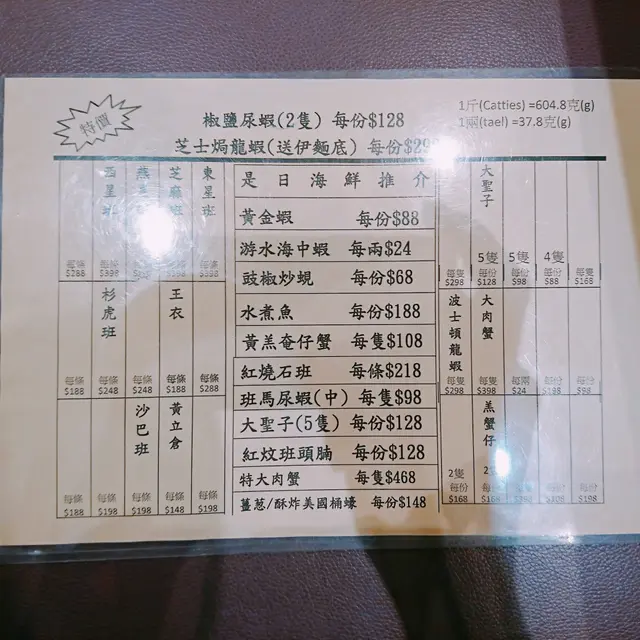 特價
1斤(Catties) =604.8克(g)
1兩(tael) =37.8克(g)
椒鹽尿蝦(2隻) 每份$128
芝士焗龍蝦(送伊麵底) 每份$29
是日海鮮推介
黃金蝦 每份$88
游水海中蝦 每兩$24
豉椒炒蜆 每份$68
水煮魚 每份$188
黃羔奄仔蟹 每隻$108
紅燒石班 每條$218
班馬尿蝦(中) 每隻$98
大聖子(5隻) 每份$128
紅炆班頭腩 每份$128
特大肉蟹 每隻$468
薑葱/酥炸美國桶蠔 每份$148
東星班
芝麻班
西星班
每條 $288
每條 $398
每條 $398
王衣
杉虎班
每條 $188
每條 $248
每條 $248
每條 $188
每條 $288
黃立倉
沙巴班
每條 $188
每條 $198
每條 $198
每條 $148
每條 $198
大聖子
每隻 $298
5隻 每份 $128
5隻 每份 $98
4隻 每份 $88
每隻 $168
波士頓龍蝦
大肉蟹
每隻 $298
每隻 $398
每兩 $24
每份
每份
羔蟹仔
2隻 每份 $168
每份
每份 $198